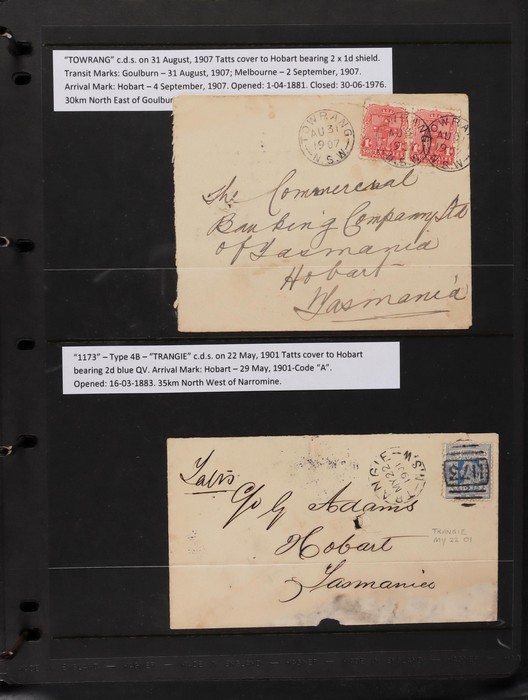 "TOWRANG" c.d.s. on 31 August, 1907 Tatts cover to Hobart bearing 2 x 1d shield.
Transit Marks: Goulburn – 31 August, 1907; Melbourne – 2 September, 1907.
Arrival Mark: Hobart – 4 September, 1907. Opened: 1-04-1881. Closed: 30-06-1976.
30km North East of Goulbur
TOWRANG
AU 31
1907
N.S.W
The Commercial
Banking Company Ltd
of Tasmania
Hobart
Tasmania
"1173" – Type 4B – "TRANGIE" c.d.s. on 22 May, 1901 Tatts cover to Hobart
bearing 2d blue QV. Arrival Mark: Hobart – 29 May, 1901-Code "A".
Opened: 16-03-1883. 35km North West of Narromine.
TRANGIE N.S.W
MY 22
1901
Tatts
C/o G Adams
Hobart
Tasmania
TRANGIE
MY 22 01